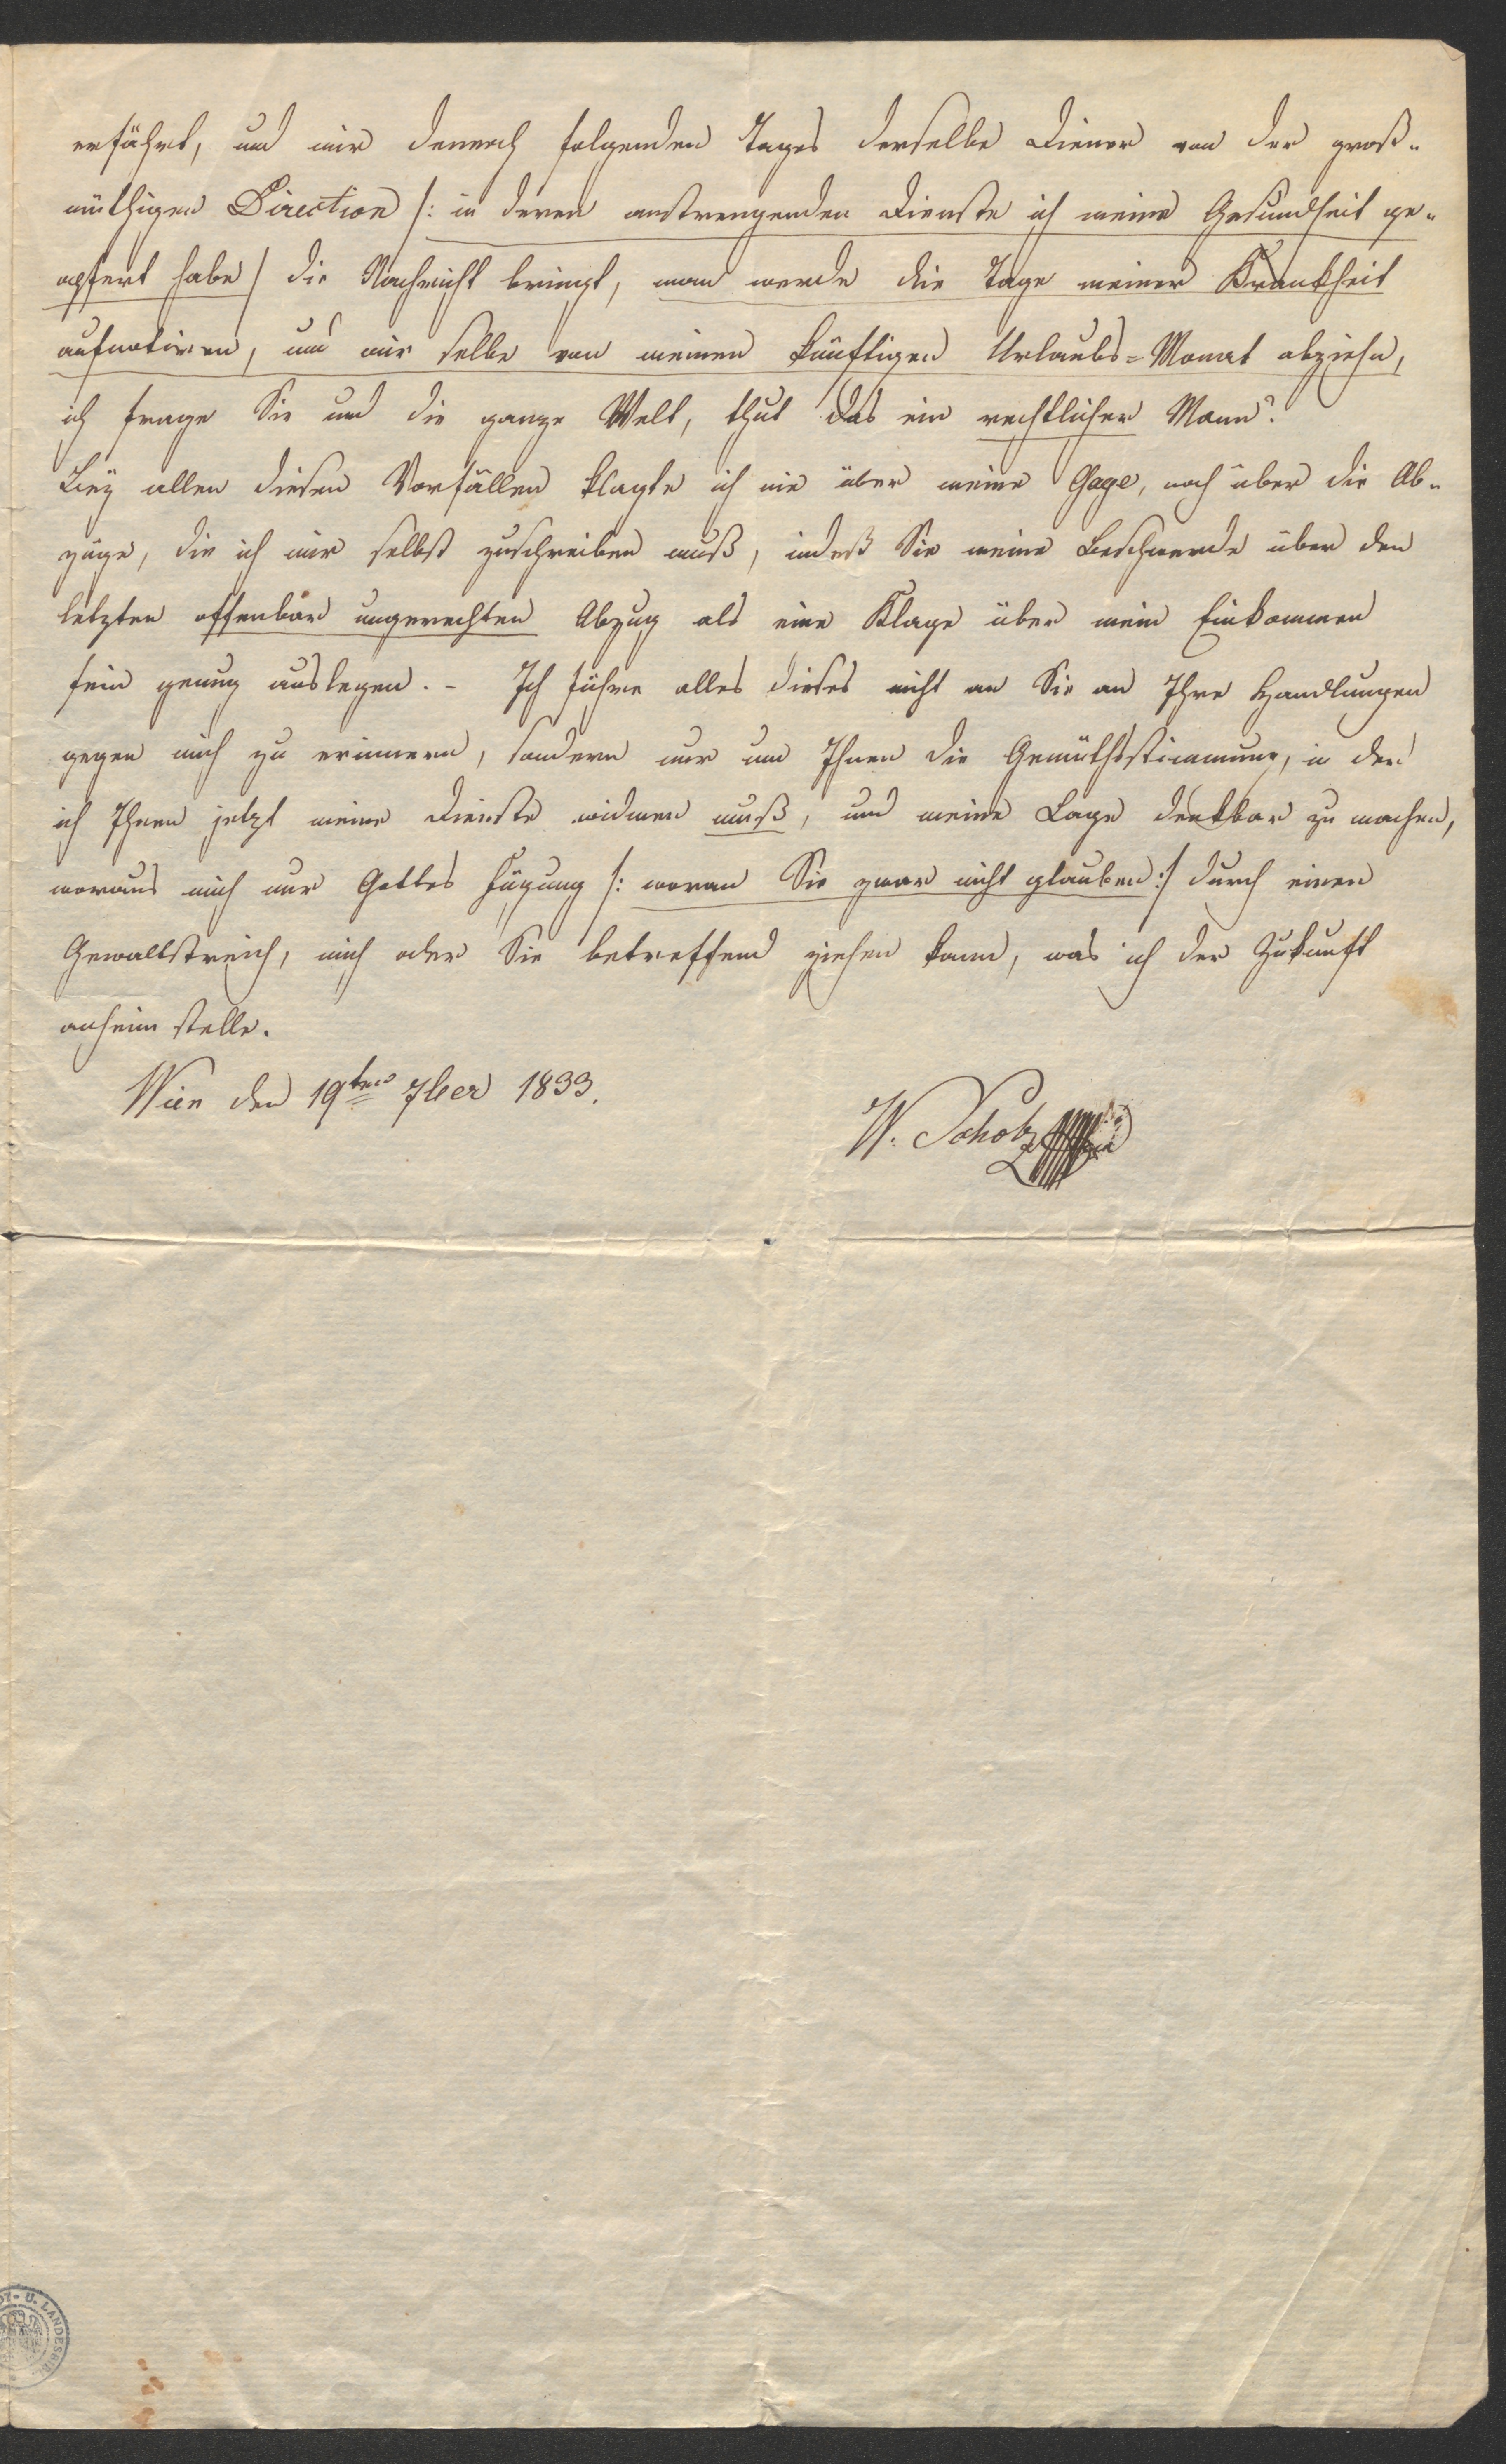 erfährt, und mir dennoch folgenden Tages derselbe Diener von der groß-
müthigen Direction /: in deren anstrengenden Dienste ich meine Gesundheit ge-
opfert habe / die Nachricht bringt, man werde die Tage meiner Krankheit
aufnotiren, und mir selbe von meinen künftigen Urlaubs=Monat abziehn,
ich frage Sie und die ganze Welt, thut das ein rechtlicher Mann?
Bey allen diesen Vorfällen klagte ich nie über meine Gage, noch über die Ab-
züge, die ich mir selbst zuschreiben muß, indeß Sie meine Beschwerde über den
letzten offenbar ungerechten Abzug als eine Klage über mein Einkommen
fein genug auslegen. - Ich führe alles dieses nicht an Sie an Ihre Handlungen
gegen mich zu erinnern, sondern nur um Ihnen die Gemüthsstimmung, in der
ich Ihnen jetzt meine Dienste widmen muß, und meine Lage denkbar zu machen,
woraus mich nur Gottes Fügung /: woran Sie zwar nicht glauben :/ durch einen
Gewaltstreich, mich oder Sie betreffend ziehen kann, was ich der Zukunft
anheim stelle.
Wien den 19ten 7ber 1833.
W. Scholz
U. LANDESBIB